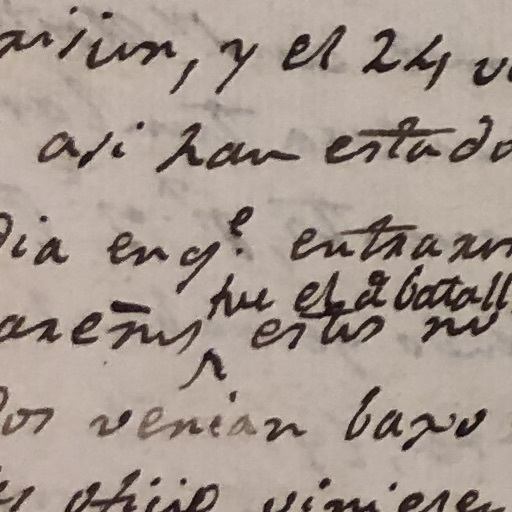 y el 24
asi han estado
dia en q.e entraron
fue el 2º batall
estos no
dos venian baxo
oficio viniere